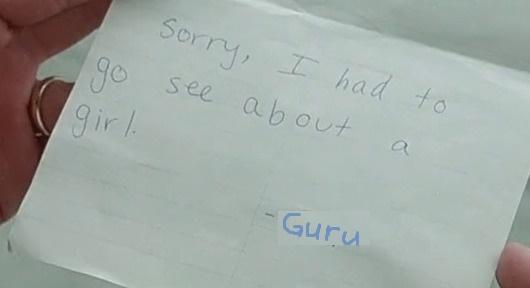 Sorry, I had to
go see about a
girl.
- Guru